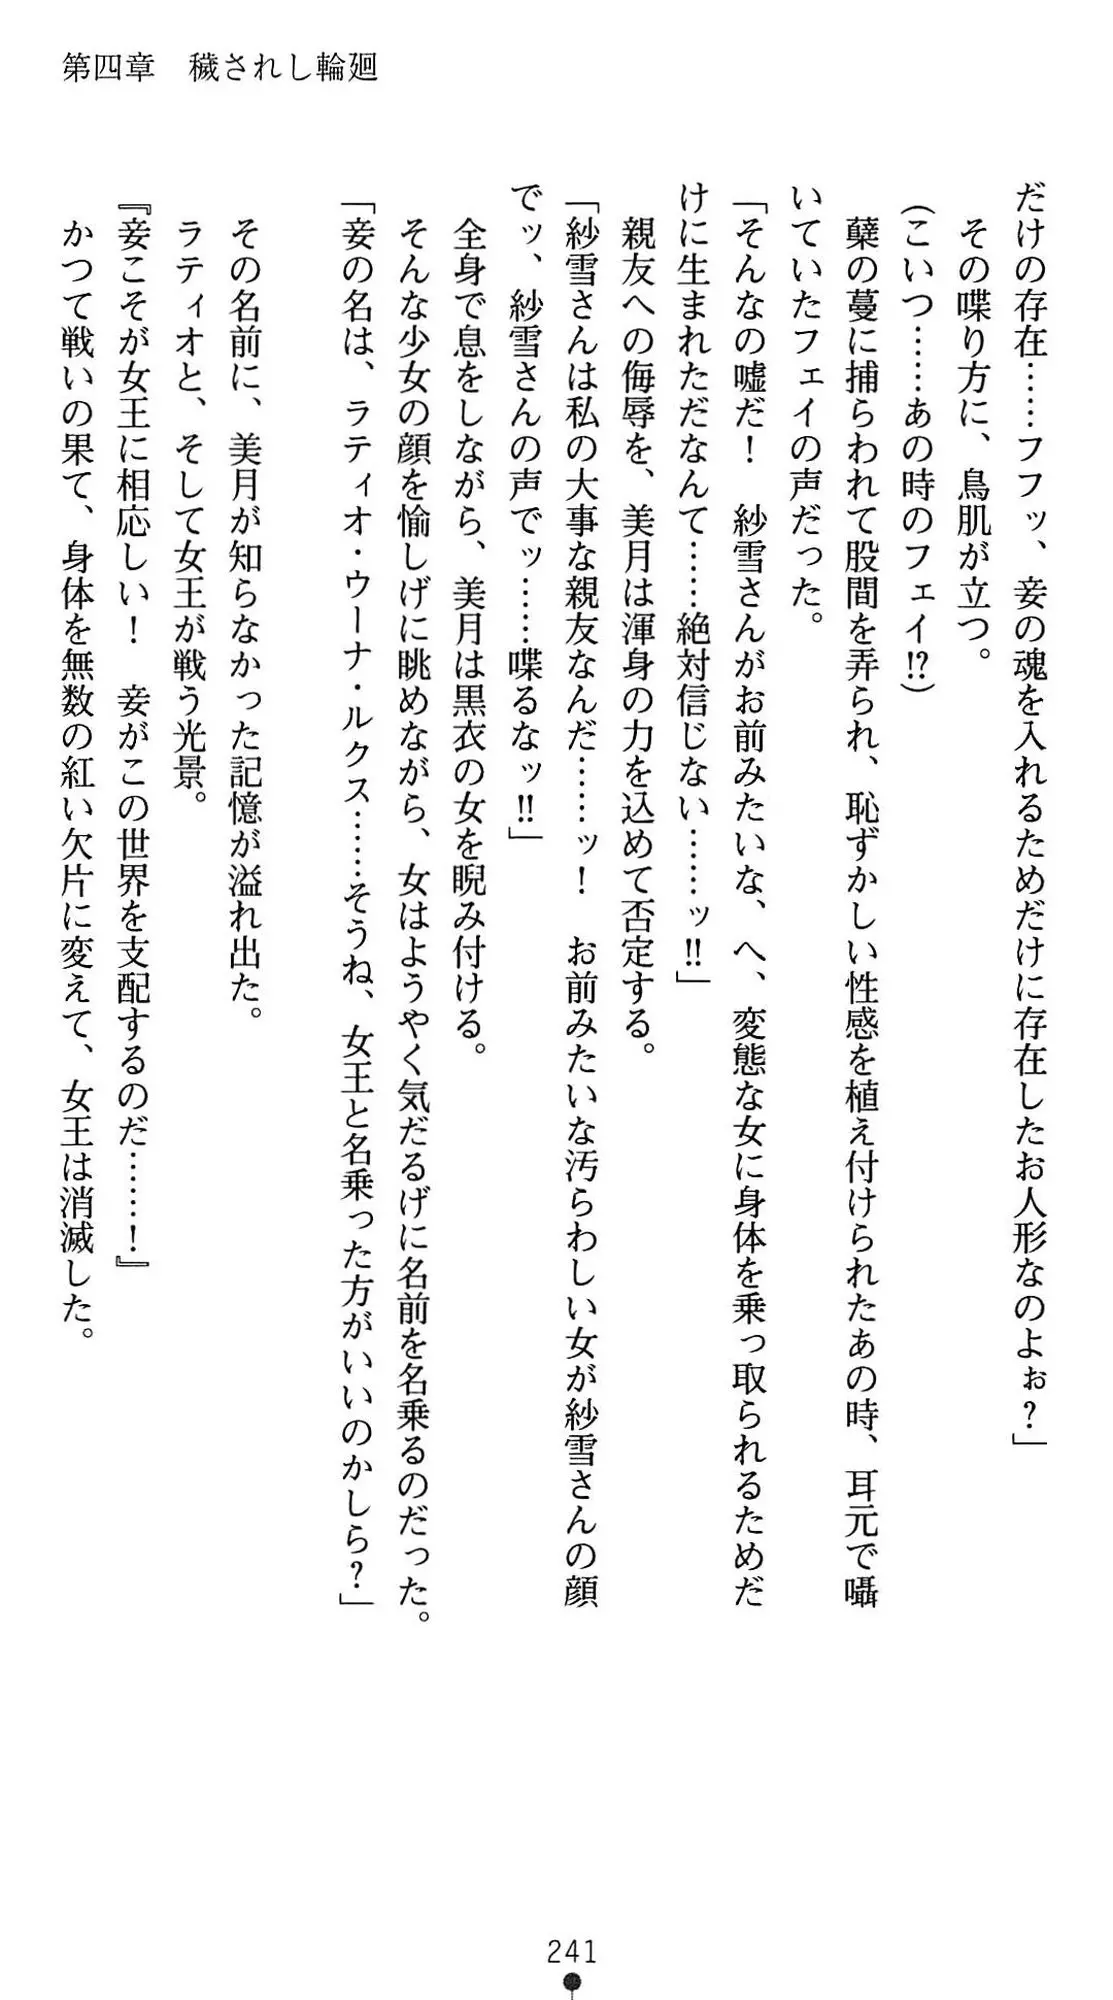 第四章　穢されし輪廻
だけの存在……フフッ、妾の魂を入れるためだけに存在したお人形なのよぉ?」
その喋り方に、鳥肌が立つ。
(こいつ……あの時のフェイ!?)
蘖の蔓に捕らわれて股間を弄られ、恥ずかしい性感を植え付けられたあの時、耳元で囁
いていたフェイの声だった。
「そんなの嘘だ!　紗雪さんがお前みたいな、へ、変態な女に身体を乗っ取られるためだ
けに生まれただなんて……絶対信じない……ッ!!」
親友への侮辱を、美月は渾身の力を込めて否定する。
「紗雪さんは私の大事な親友なんだ……ッ!　お前みたいな汚らわしい女が紗雪さんの顔
でッ、紗雪さんの声でッ……喋るなッ!!」
全身で息をしながら、美月は黒衣の女を睨み付ける。
そんな少女の顔を愉しげに眺めながら、女はようやく気だるげに名前を名乗るのだった。
「妾の名は、ラティオ・ウーナ・ルクス……そうね、女王と名乗った方がいいのかしら?」
その名前に、美月が知らなかった記憶が溢れ出た。
ラティオと、そして女王が戦う光景。
『妾こそが女王に相応しい!　妾がこの世界を支配するのだ……!』
かつて戦いの果て、身体を無数の紅い欠片に変えて、女王は消滅した。
241